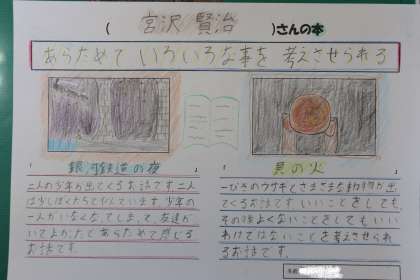 ( 宮沢 賢治 )さんの本
あらためて いろいろな事を 考えさせられる
「 銀河鉄道の夜 」
二人の少年が出てくるお話です。二人
は少しぼくたちてにています。少年の
一人がいなくなってしまって、友達が
いてよかったとあらためて感じる
お話です。
「 貝の火 」
一ぴきのウサギとさまざまな動物が出
てくるお話です。いいことをしても、
その後よくないことをしてもいい
わけではないことを考えさせられ
るお話です。
名前